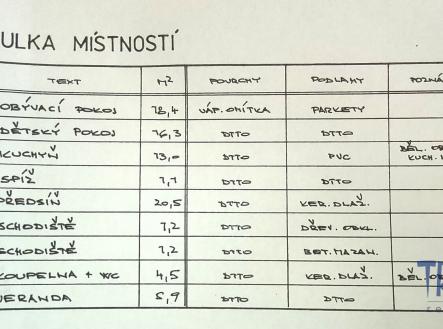 ULKA MÍSTNOSTÍ
TEXT M² POVRCHY PODLAHY POZNÁ
OBÝVACÍ POKOJ 18,4 VÁP. OMÍTKA PARKETY
DĚTSKÝ POKOJ 16,3 DTTO DTTO
KUCHYŇ 13,0 DTTO PVC BĚL. OB
KUCH.
SPÍŽ 1,1 DTTO DTTO
PŘEDSÍŇ 20,5 DTTO KER. DLAŽ.
SCHODIŠTĚ 1,2 DTTO DŘEV. OBKL.
SCHODIŠTĚ 1,2 DTTO BET. MAZAN.
KOUPELNA + WC 4,5 DTTO KER. DLAŽ. BĚL. OB
VERANDA 5,9 DTTO DTTO